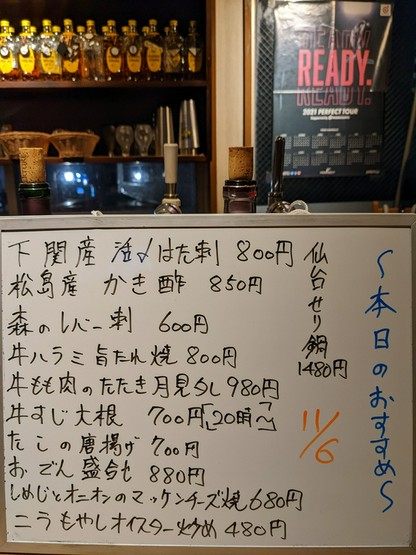 READY.
READY.
READY.
2021 PERFECT TOUR
〜本日のおすすめ〜
11/6
下関産 活〆はた刺 800円
松島産 かき酢 850円
森のレバー刺 600円
牛ハラミ旨たれ焼 800円
牛もも肉のたたき月見ダレ 980円
牛すじ大根 700円「20時〜」
たこの唐揚げ 700円
おでん盛合せ 880円
しめじとオニオンのマッケンチーズ焼 680円
ニラもやしオイスター炒め 480円
仙台せり鍋
1480円